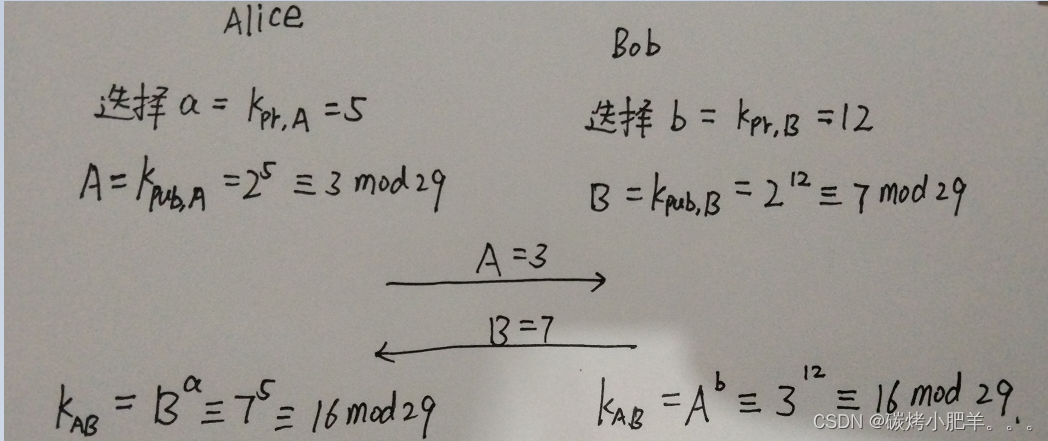 Alice
Bob
选择 a = k_{pr,A} = 5
选择 b = k_{pr,B} = 12
A = k_{pub,A} = 2^5 ≡ 3 mod 29
B = k_{pub,B} = 2^{12} ≡ 7 mod 29
A = 3
B = 7
k_{AB} = B^a ≡ 7^5 ≡ 16 mod 29
k_{AB} = A^b ≡ 3^{12} ≡ 16 mod 29.
CSDN @碳烤小肥羊。。。